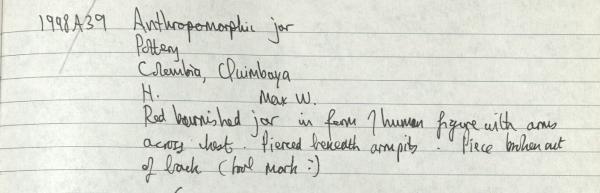 1998A39 Anthropomorphic jar
Pottery
Colombia, Quimbaya
H. Max W.
Red burnished jar in form of human figure with arms
across chest. Pierced beneath armpits. Piece broken out
of back (tool mark?)